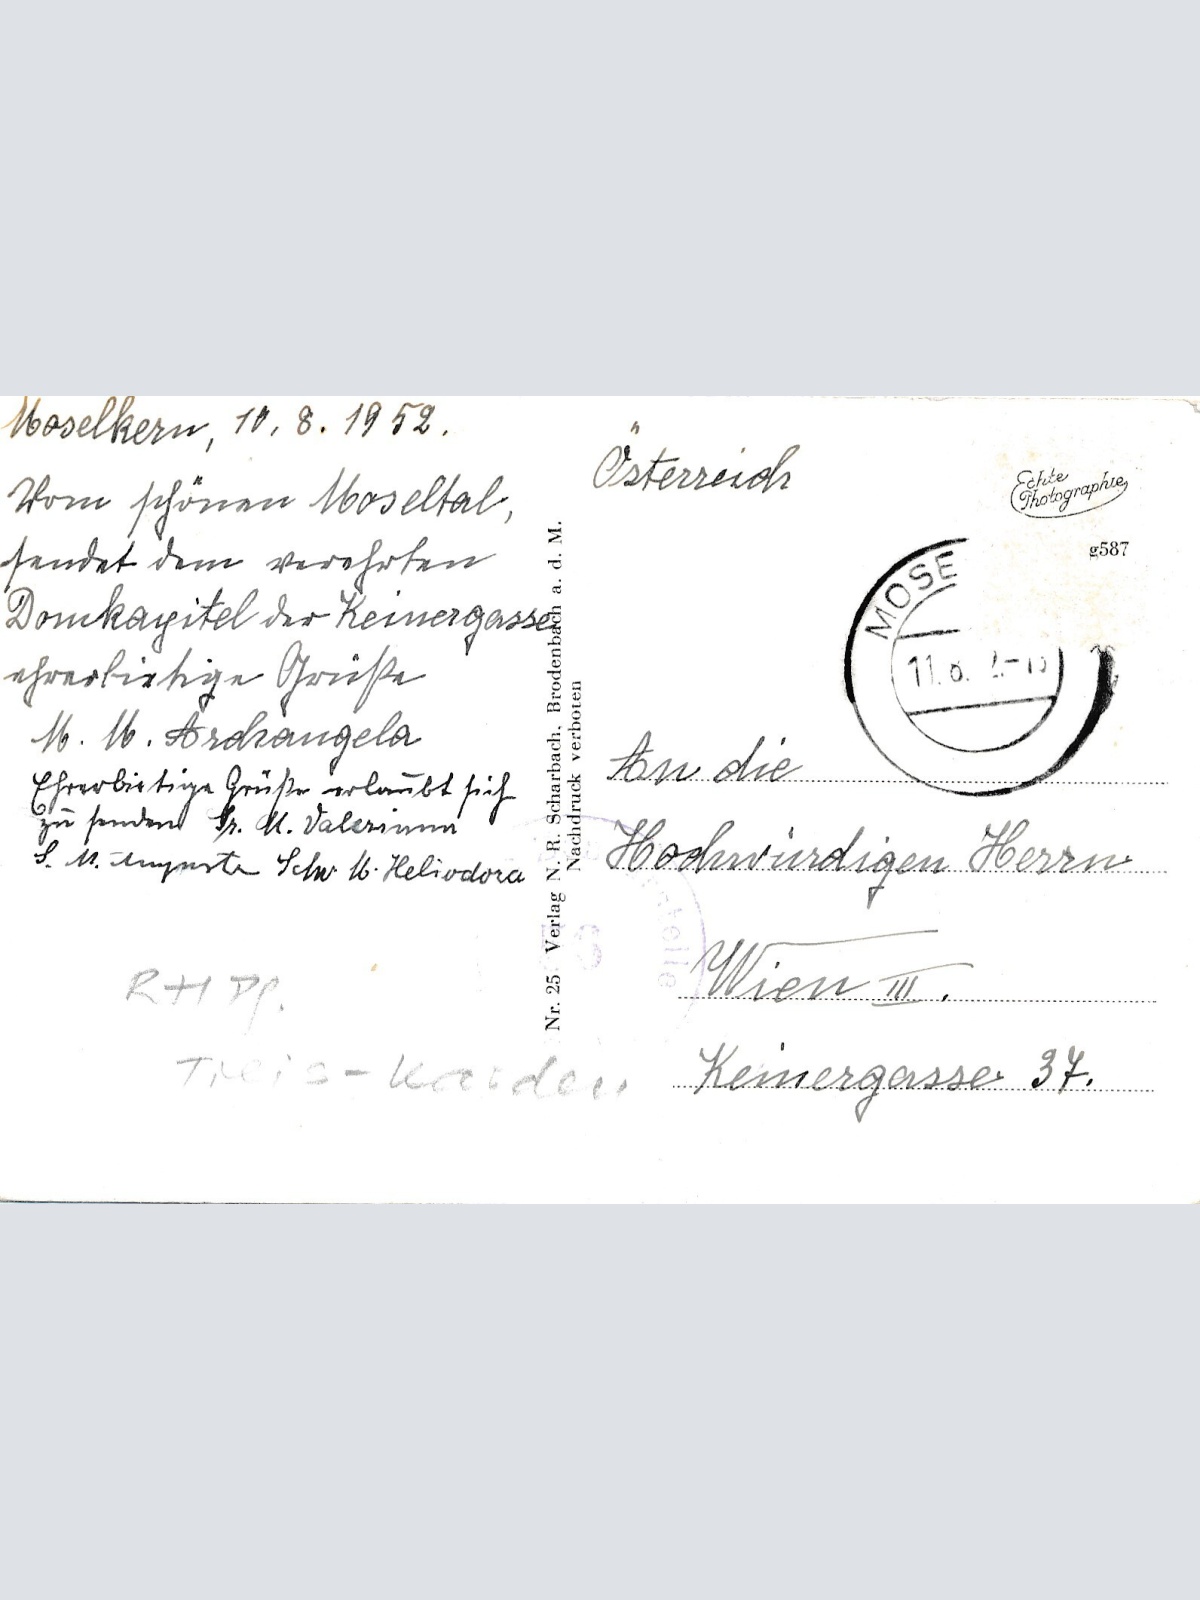 Moselkern, 10. 8. 1952.
Vom schönen Moseltal,
sendet dem verehrten
Domkapitel der Keinergasse
ehrerbietige Grüße
M. M. Archangela
Ehrerbietige Grüße erlaubt sich
zu senden Sr. M. Valeriana
S. M. Auguste Schw. M. Heliodora
RHPf.
Treis-Karden
Nr. 25 Verlag N. R. Scharbach, Brodenbach a. d. M.
Nachdruck verboten
Österreich
Echte
Photographie
g587
MOSE
11. 8.
An die
Hochwürdigen Herrn
Wien III.
Keinergasse 37.